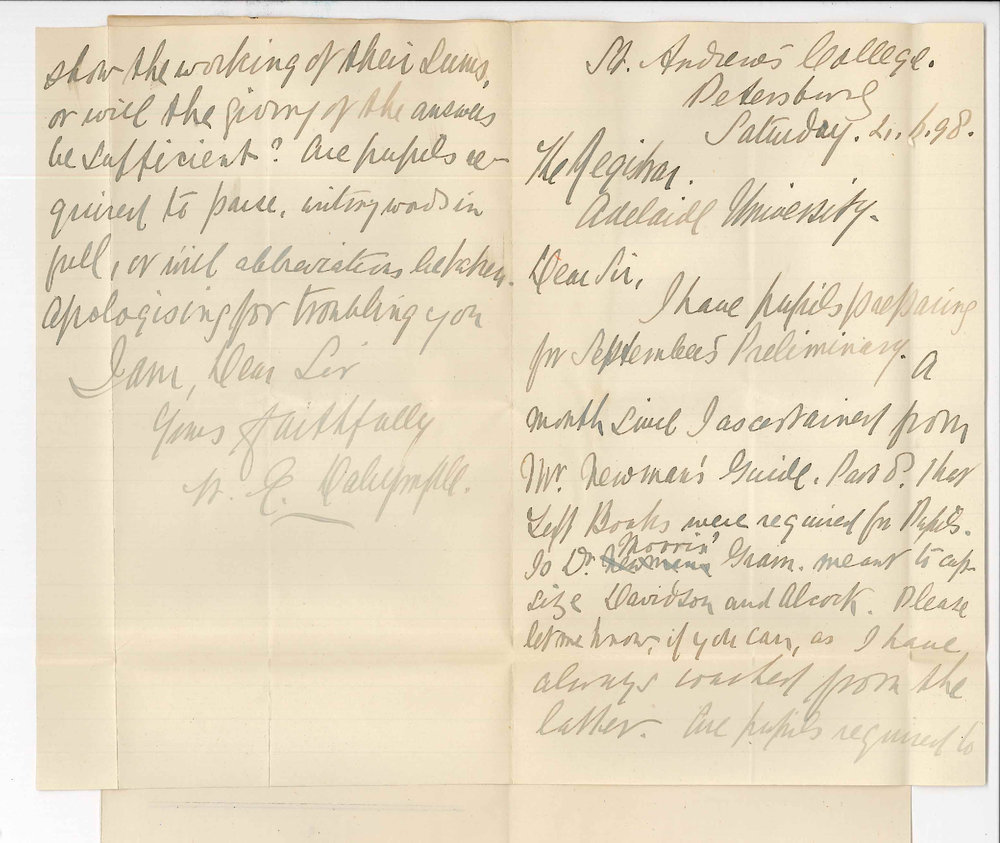 St. Andrew's College.
Petersburg
Saturday. 98.
The Registrar.
Adelaide University.
Dear Sir,
I have pupils preparing
for September's Preliminary. A
month since I ascertained from
Mr. Newman's Guide. Part 8. that
Text Books were required for Pupils.
Is Dr. Morris' Gram. meant to cap-
size Davidson and Alcock. Please
let me know, if you can, as I have
always coached from the
latter. Are pupils required to
show the working of their sums,
or will the giving of the answers
be sufficient? Are pupils re-
quired to parse, writing words in
full, or will abbreviations be taken.
Apologising for troubling you
I am, Dear Sir
Yours faithfully
C. Dalrymple.